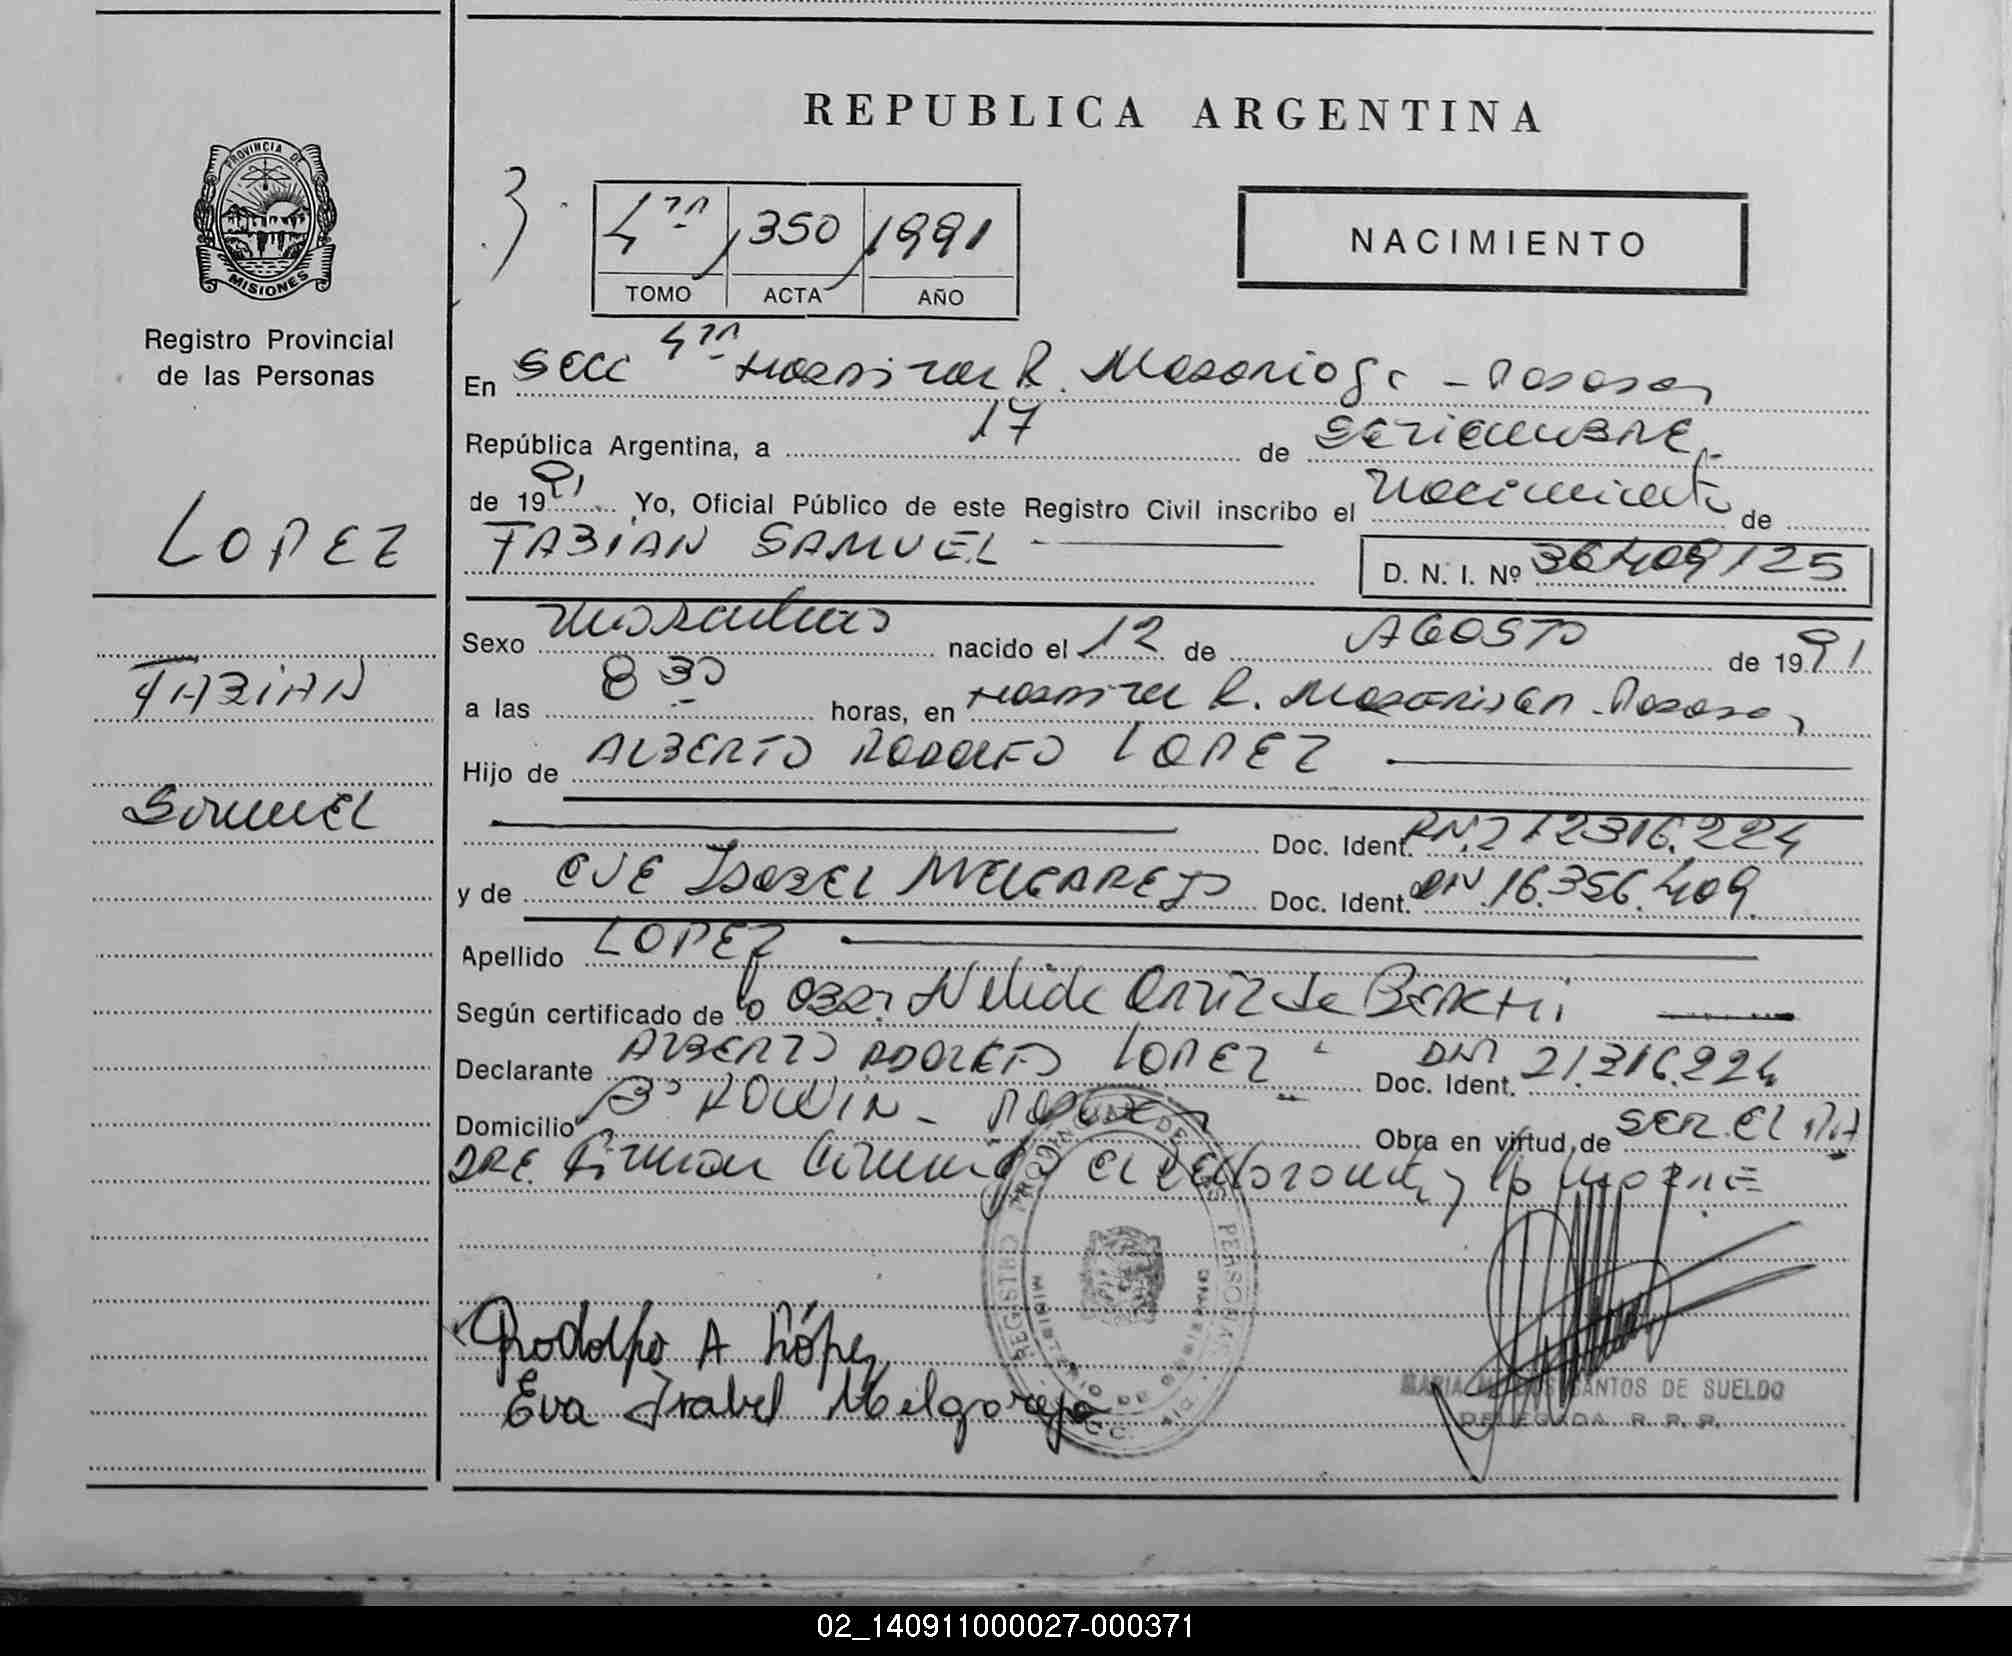 REPUBLICA ARGENTINA
PROVINCIA DE
MISIONES
Registro Provincial
de las Personas
LOPEZ
FABIAN
Samuel
3
4ta 350 1991
TOMO ACTA AÑO
NACIMIENTO
En Secc 4ta Hospital R. Madariaga - Posadas
República Argentina, a 17 de SETIEMBRE
de 1991 Yo, Oficial Público de este Registro Civil inscribo el Nacimiento de
FABIAN SAMUEL D. N. I. Nº 36409125
Sexo Masculino nacido el 12 de AGOSTO de 1991
a las 8 30 horas, en Hospital R. Madariaga - Posadas
Hijo de ALBERTO RODOLFO LOPEZ
Doc. Ident. DNI 21.316.224
y de EVE ISABEL MELGAREJO Doc. Ident. DNI 16.356.409
Apellido LOPEZ
Según certificado de la Obst. Nelida Ortiz de
Declarante ALBERTO RODOLFO LOPEZ Doc. Ident. DNI 21.316.224
Domicilio Bº ROWIN - Posadas Obra en virtud de SER EL PA
DRE. Firman conmigo el declarante y la madre
Rodolfo A López
Eva Isabel Melgarejo
REGISTRO PROVINCIAL DE LAS PERSONAS
MINISTERIO DE GOBIERNO
MARIA SANTOS DE SUELDO
DELEGADA R. P. P.
02_140911000027-000371